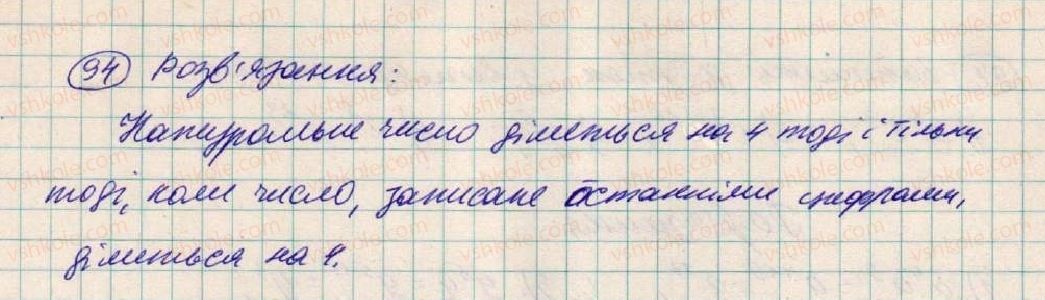 94 Розв'язання:
Натуральне число ділиться на 4 тоді і тільки
тоді, коли число, записане останніми цифрами,
ділиться на 4.